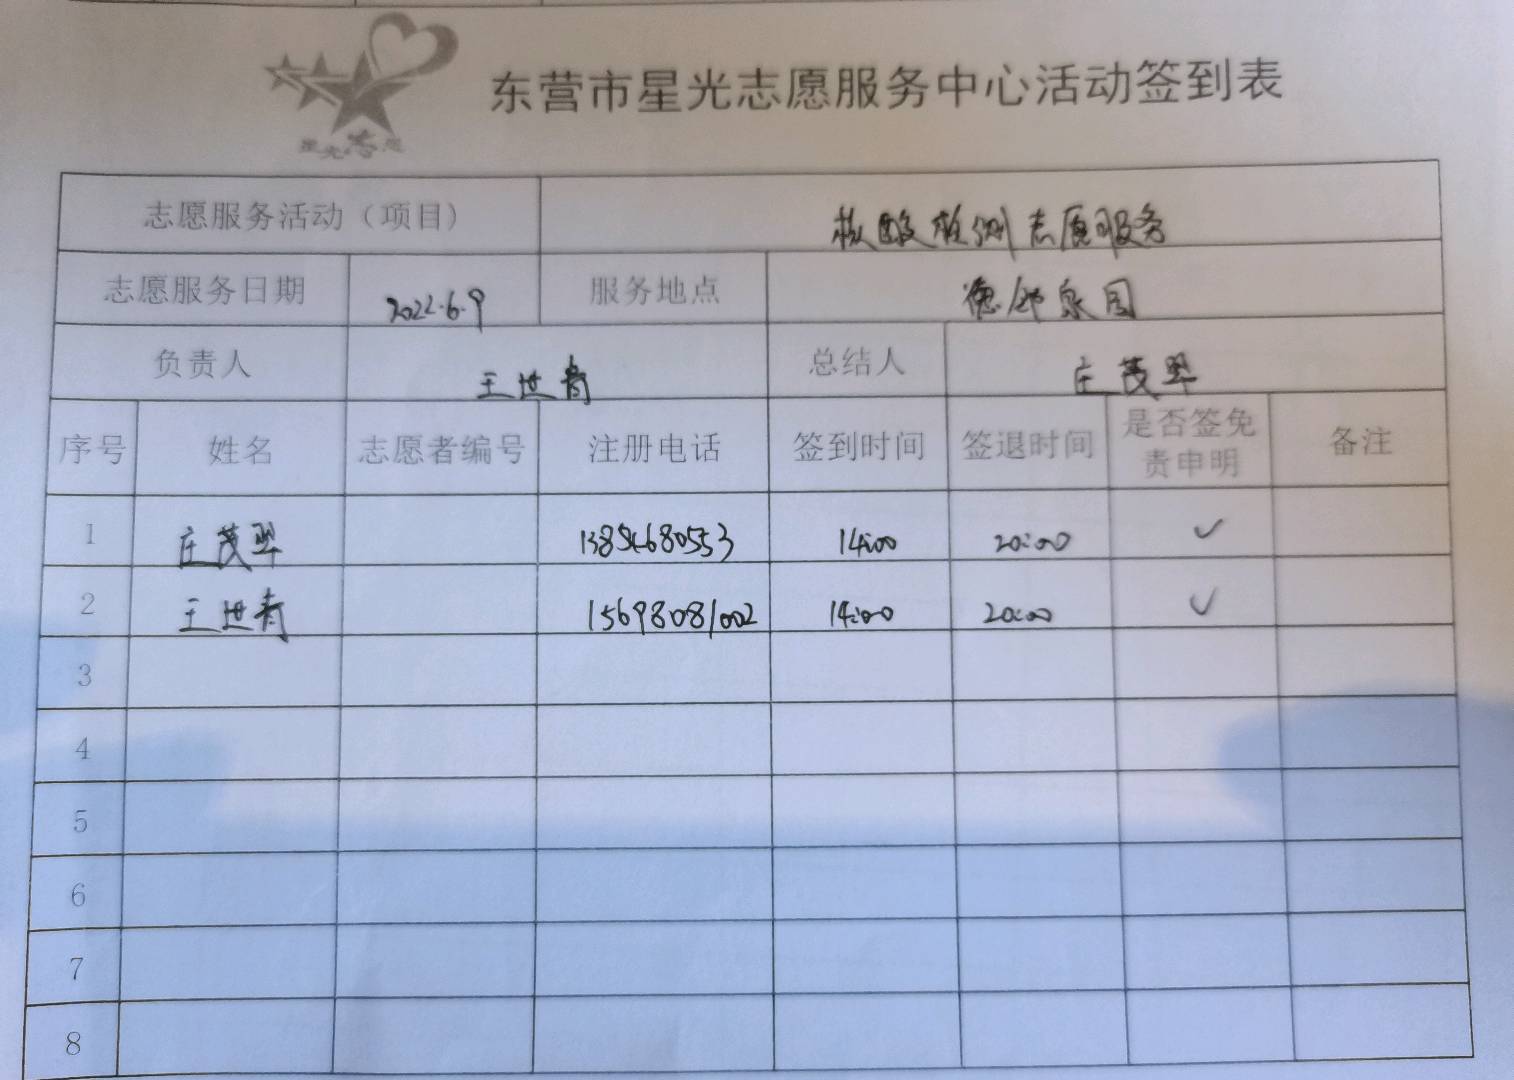 星光志愿
东营市星光志愿服务中心活动签到表
志愿服务活动（项目） 核酸检测志愿服务
志愿服务日期 2022.6.9 服务地点 德邻泉园
负责人 王世青 总结人 庄茂翠
序号 姓名 志愿者编号 注册电话 签到时间 签退时间 是否签免 备注
责申明
1 庄茂翠 13854680553 14:00 20:00 ✓
2 王世青 15698081002 14:00 20:00 ✓
3
4
5
6
7
8